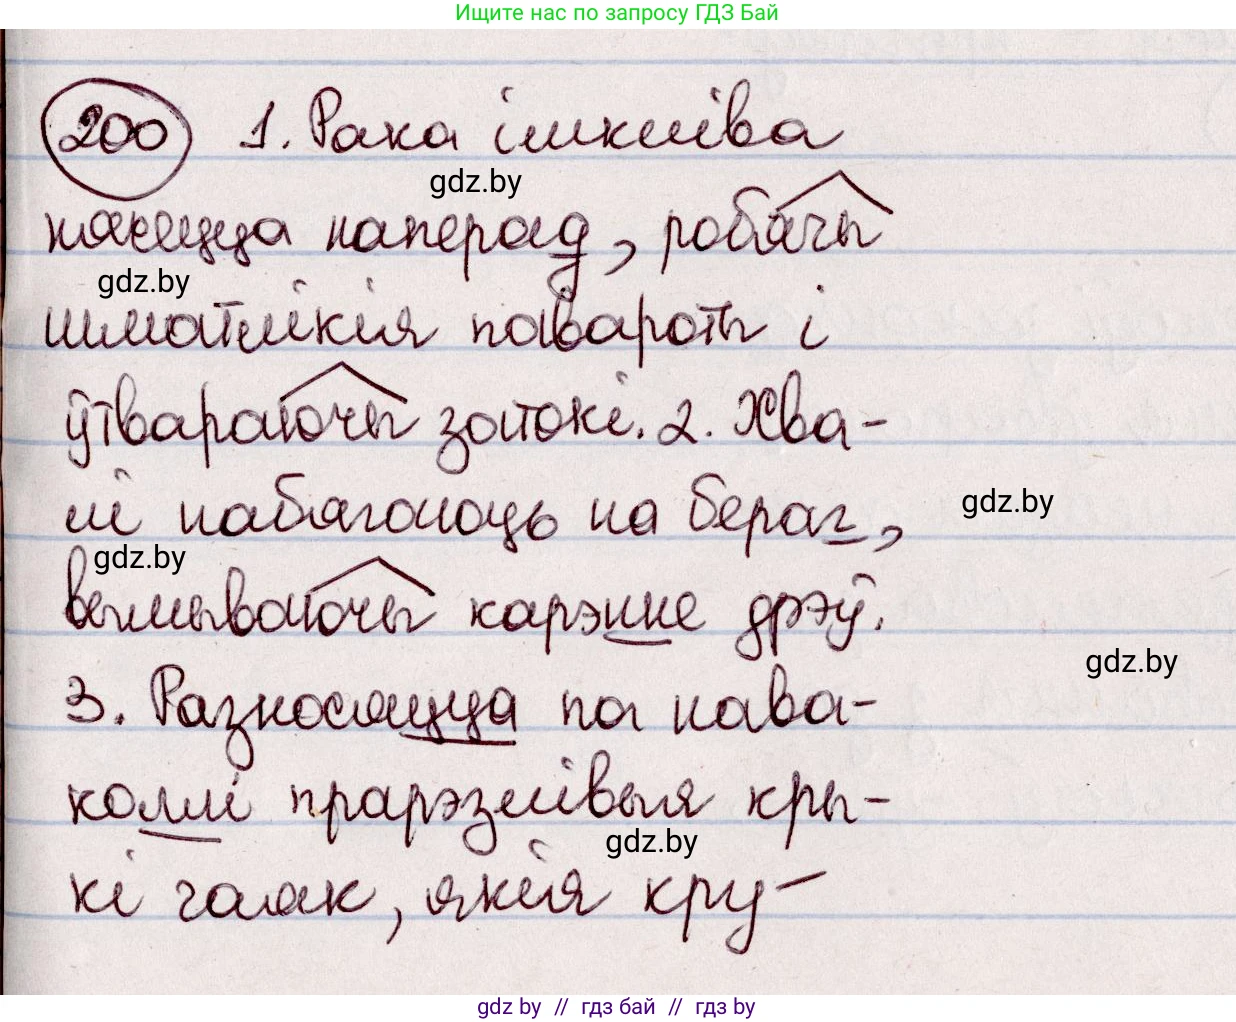 Ищите нас по запросу ГДЗ Бай
200 1. Рака імкліва
gdz.by
нясецца наперад, робячы
gdz.by
шматлікія павароты і
ўтвараючы затокі. 2. Хва-
лі набягаюць на бераг,
gdz.by
gdz.by
вымываючы карэнне дрэў.
gdz.by
3. Разносяцца па нава-
коллі прарэзлівыя кры-
gdz.by
кі чаек, якія кру-
gdz by // гдз бай // гдз by